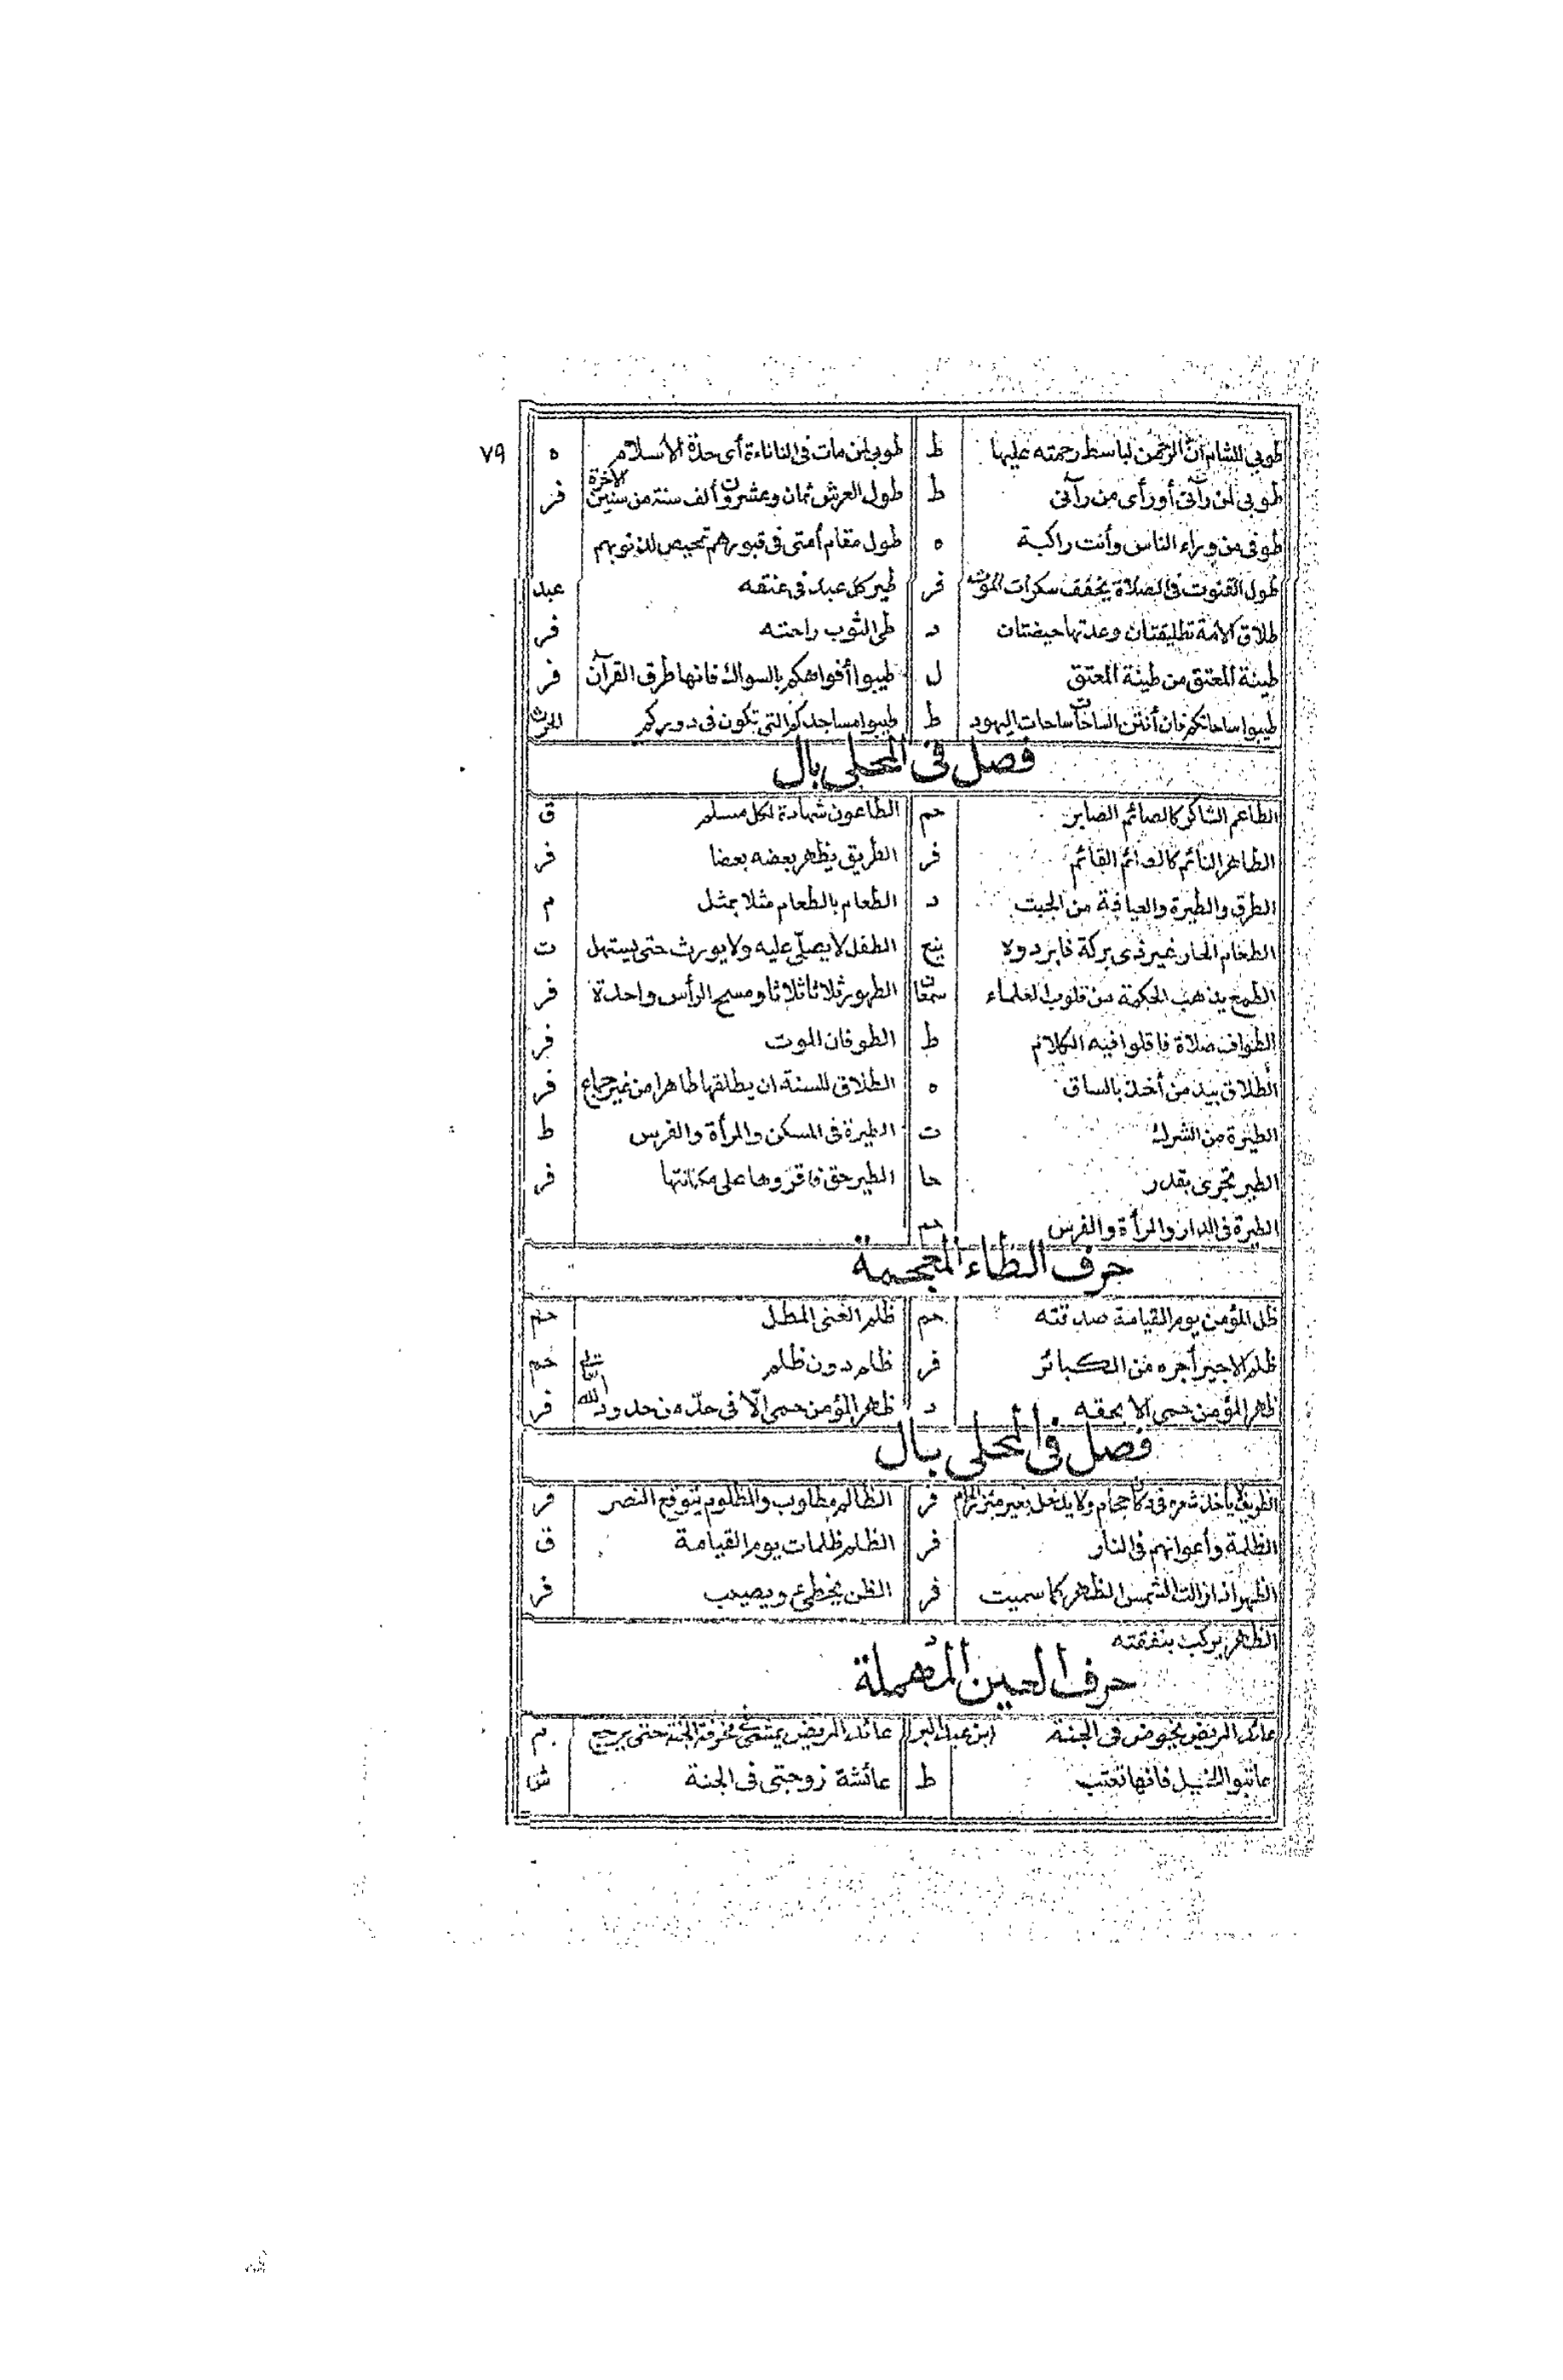 ٧٩
طوبى للشام أن الرحمن لباسط رحمته عليها ط طوبى لمن مات في النأنأة أى حدة الاسلام ه
طوبى لمن رآنى أو رأى من رآنى ط طول العرش ثمان وعشرون ألف سنة من سنين الآخرة فر
طوفى من وراء الناس وأنت راكبة ه طول مقام أمتى فى قبورهم تمحيص لذنوبهم
طول القنوت فى الصلاة يخفف سكرات الموت فر طير كل عبد فى عنقه عبد
طلاق الامة تطليقتان وعدتها حيضتان د طى الثوب راحته فر
طينة المعتق من طينة المعتق ل طيبوا أفواهكم بالسواك فانها طرق القرآن فر
طيبوا ساحاتكم فان أنتن الساحات ساحات اليهود ط طيبوا مساجدكم التى تكون فى دوركم
فصل فى المحلى بال
الطاعم الشاكر كالصائم الصابر حم الطاعون شهادة لكل مسلم ق
الطاهر النائم كالصائم القائم فر الطريق يظهر بعضه بعضا فر
الطرق والطيرة والعيافة من الجبت د الطعام بالطعام مثلا بمثل م
الطعام الحار غير ذى بركة فابردوه الطفل لا يصلى عليه ولا يورث حتى يستهل ت
الطمع يذهب الحكمة من قلوب العلماء سمعان الطهور ثلاثا ثلاثا ومسح الرأس واحدة فر
الطواف صلاة فاقلوا فيه الكلام ط الطوفان الموت فر
الطلاق بيد من أخذ بالساق ه الطلاق للسنة ان يطلقها طاهرا من غير جماع فر
الطيرة من الشرك ت الطيرة فى المسكن والمرأة والفرس ط
الطير تجرى بقدر حا الطير حق فاقروها على مكانتها فر
الطيرة فى الدار والمرأة والفرس حم
حرف الظاء المعجمة
ظل المؤمن يوم القيامة صدقته حم ظلم الغنى المطل حم
ظلم الاجير أجره من الكبائر فر ظلم دون ظلم حم
ظهر المؤمن حمى الا بحقه د ظهر المؤمن حمى الّا فى حدّ من حدود الله فر
فصل فى المحلى بال
فر الظالم مطلوب والمظلوم يتوقع النصر فر
الظلمة وأعوانهم فى النار فر الظلم ظلمات يوم القيامة ق
الظهر اذا زالت الشمس الظهر كما سميت فر الظن يخطئ ويصيب فر
الظهر يركب بنفقته د
حرف العين المهملة
عائد المريض يخوض فى الجنة ابن عبد البر عائد المريض يمشى فى مخرفة الجنة حتى يرجع م
عاتبوا الخيل فانها تعتب ط عائشة زوجتى فى الجنة ش